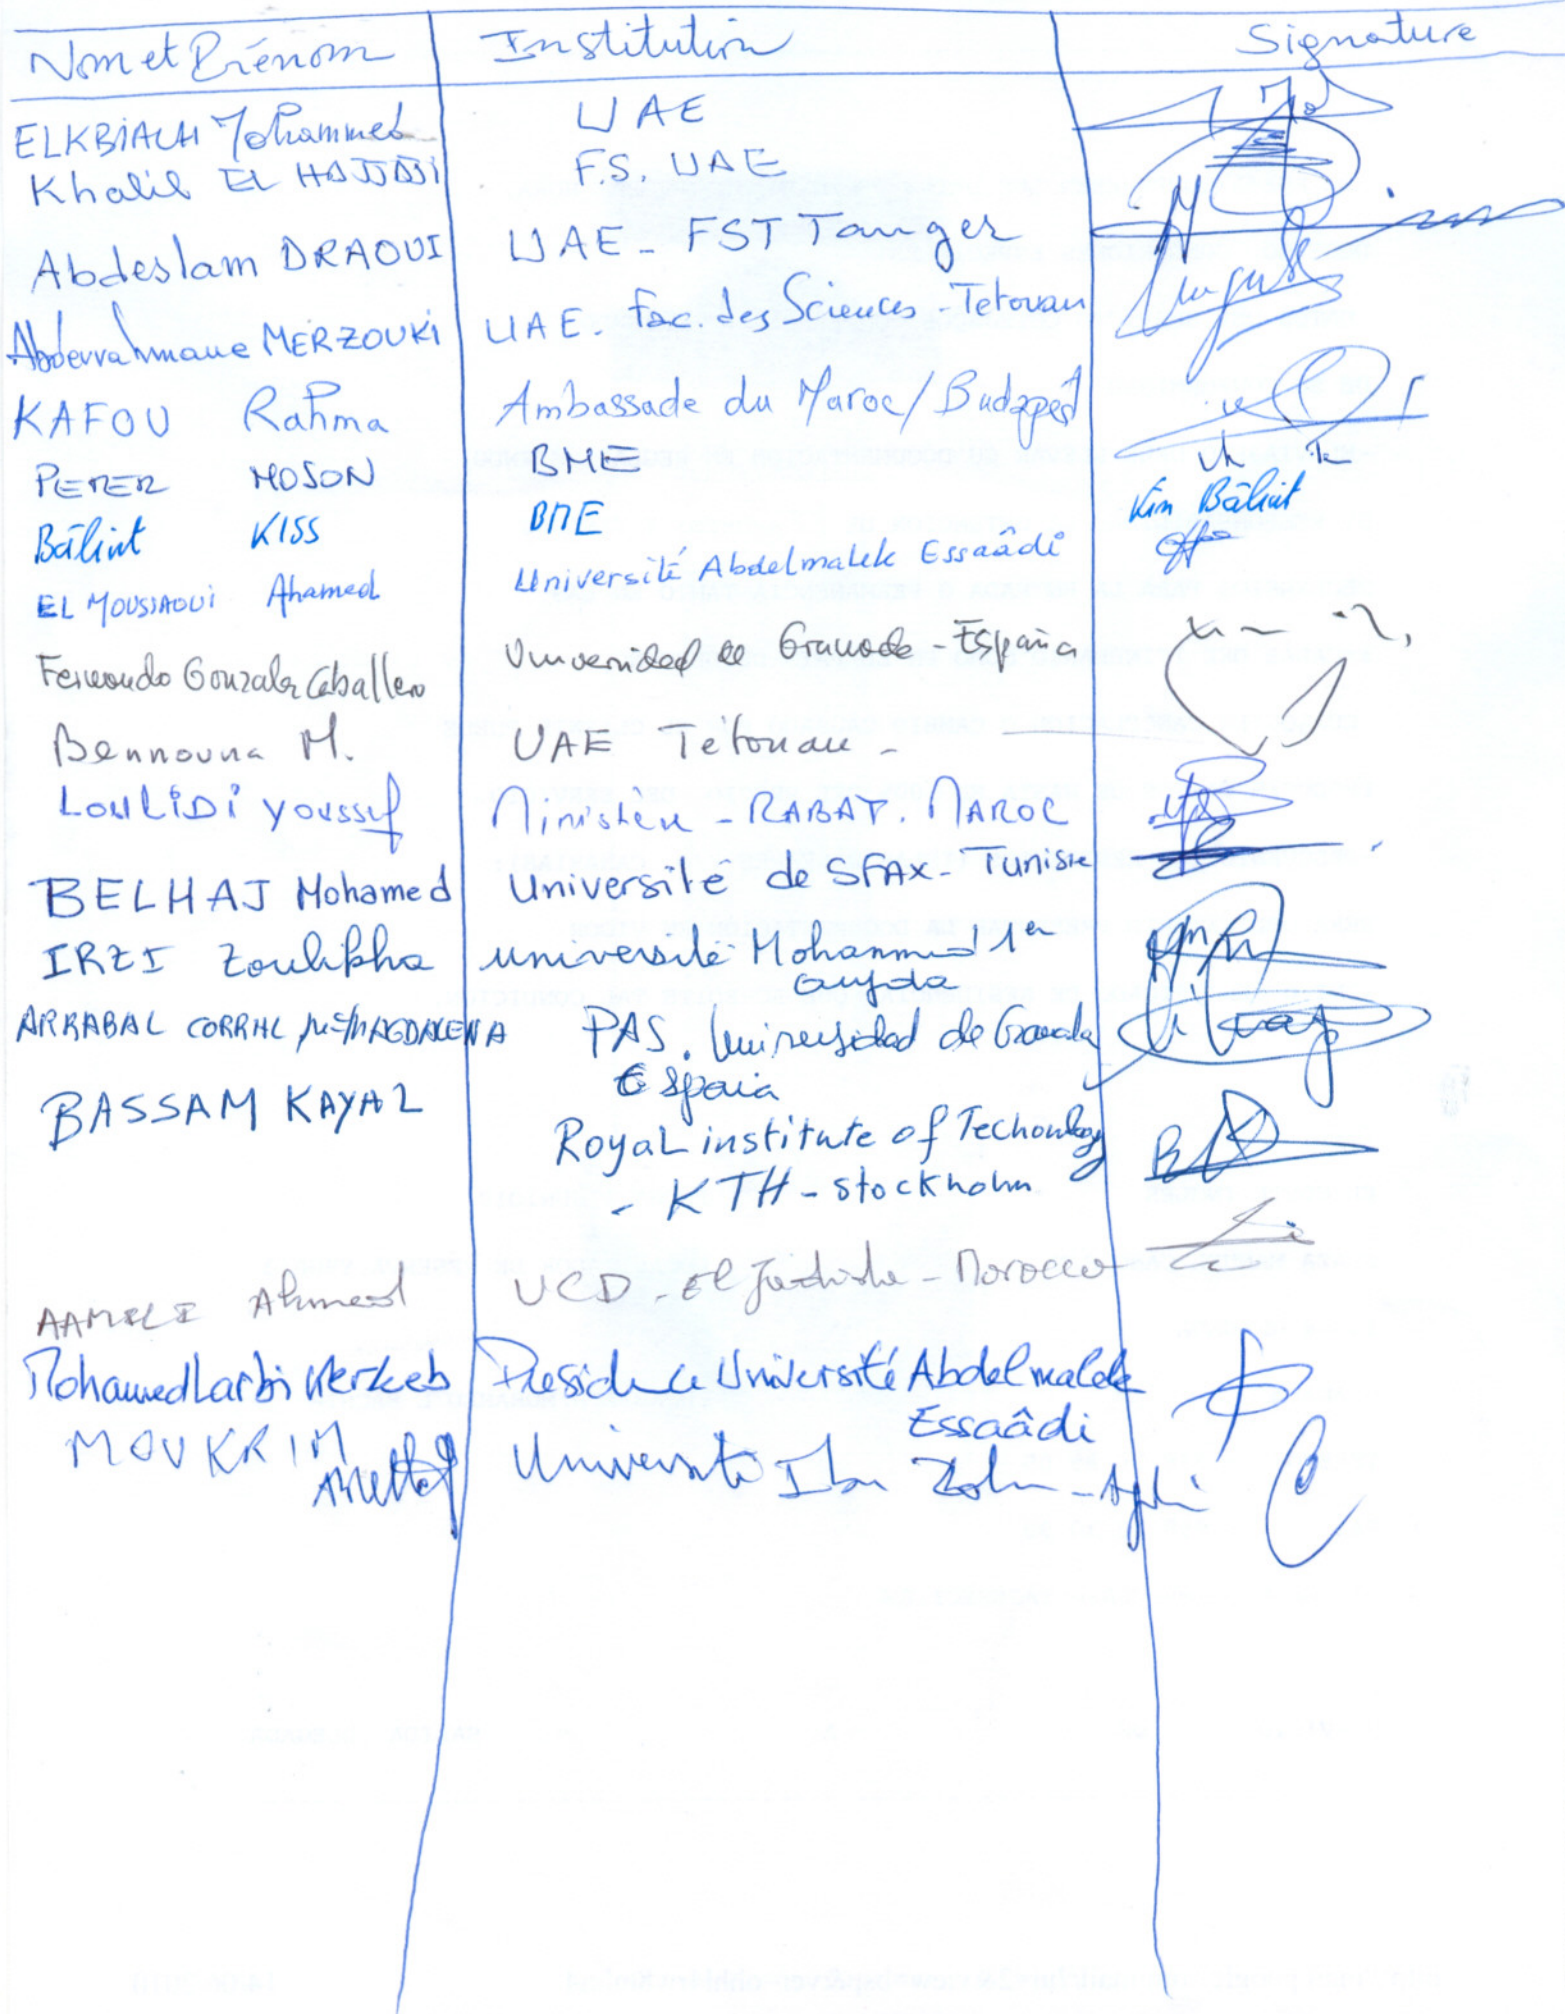 Nom et Prénom Institution Signature
ELKBIACH Mohammed UAE
Khalil EL HAJJAJI F.S. UAE
Abdeslam DRAOUI UAE - FST Tanger
Abderrahmane MERZOUKI UAE - Fac. des Sciences - Tetouan
KAFOU Rahma Ambassade du Maroc/Budapest
PETER MOSON BME
Bálint KISS BME Kiss Bálint
EL MOUSSAOUI Ahamed Université Abdelmalek Essaâdi
Fernando Gonzalez Caballero Universidad de Granada - España
Bennouna M. UAE Tétouan -
LOULIDI Youssef Ministère - RABAT. MAROC
BELHAJ Mohamed Université de SFAX - Tunisie
IRZI Zoulikha université Mohammed 1er
oujda
ARRABAL CORRAL Mª MAGDALENA PAS. Universidad de Granada
España
BASSAM KAYAL
Royal institute of Techonlogy
- KTH - Stockholm
AAMILI Ahmed UCD - El Jadida - Morocco
Mohamed Larbi Kerkeb Presidence Université Abdelmalek
Essaâdi
MOUKRIM Université Ibn Zohr - Agadir